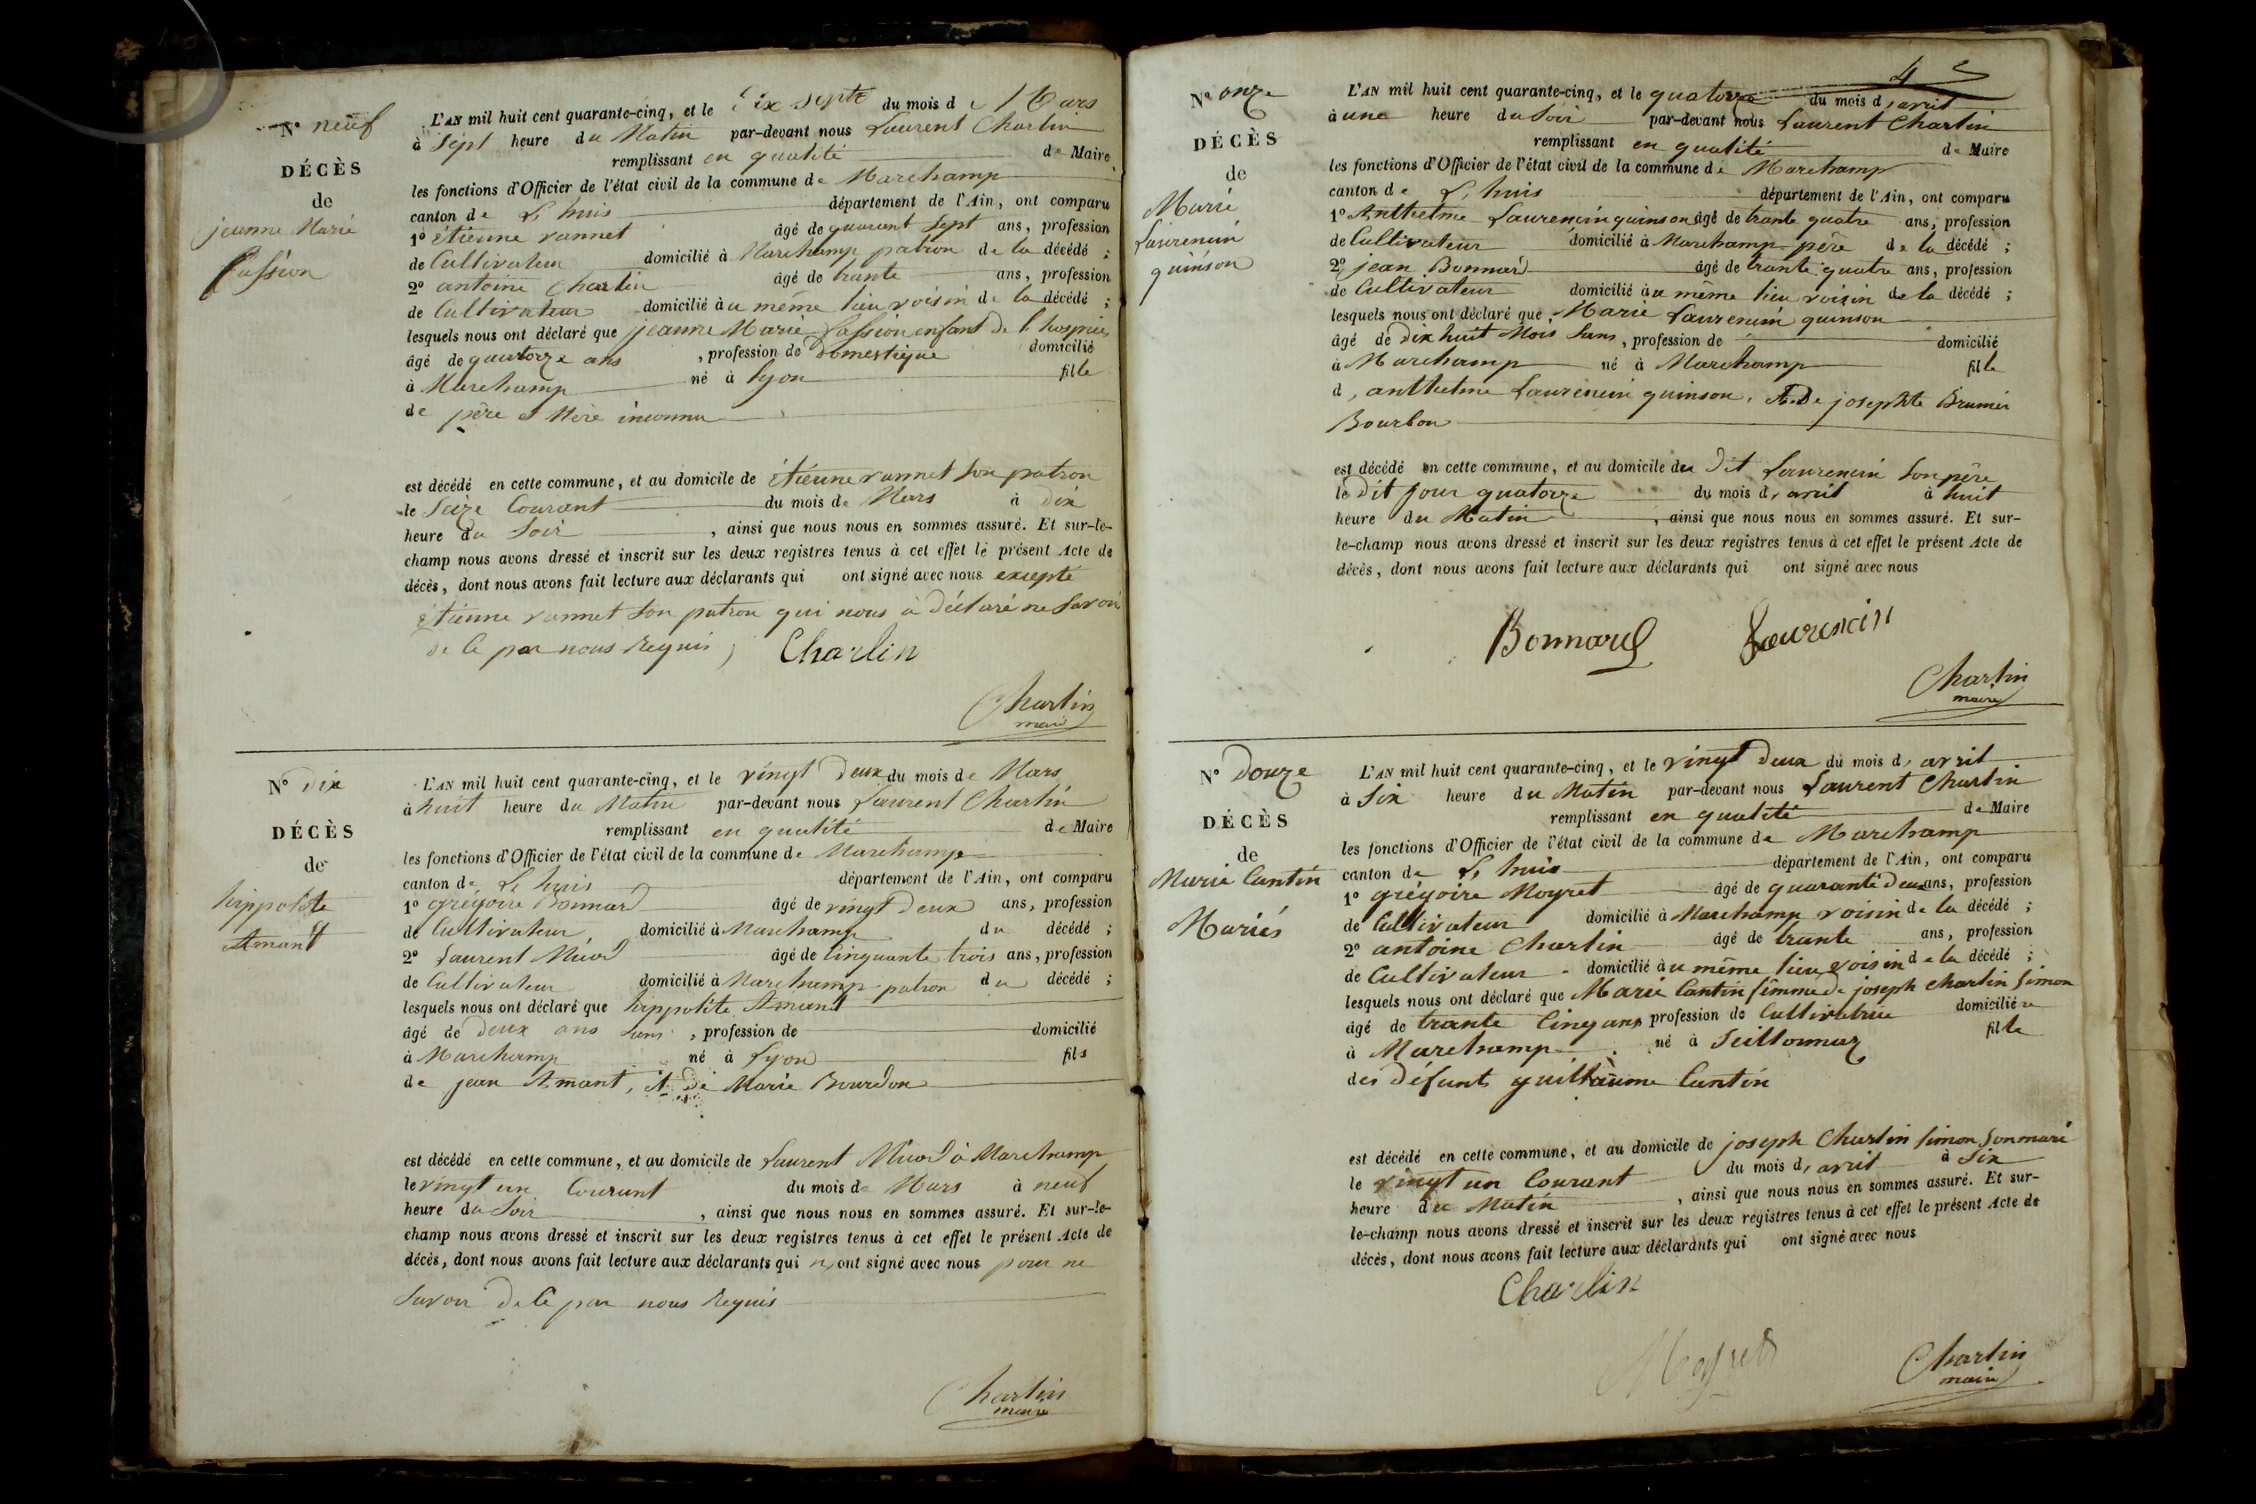 N° neuf
DÉCÈS
de
jeanne Marie
Passion
L'AN mil huit cent quarante-cinq, et le dix septe du mois de Mars
à Sept heure du Matin par-devant nous Laurent Charlin
remplissant en qualité de Maire
les fonctions d'Officier de l'état civil de la commune de Marchamp
canton de L'huis département de l'Ain, ont comparu
1° étienne vannet âgé de quarant sept ans, profession
de Cultivateur domicilié à Marchamp patron de la décédé ;
2° antoine Charlin âgé de trante ans, profession
de Cultivateur domicilié au même lieu voisin de la décédé ;
lesquels nous ont déclaré que jeanne Marie Passion enfant de l'hospice
âgé de quatorze ans , profession de Domestique domicilié
à Marchamp né à Lyon fille
de père et Mère inconnu
est décédé en cette commune, et au domicile de étienne vannet Son patron
le Seize Courant du mois de Mars à dix
heure du Soir , ainsi que nous nous en sommes assuré. Et sur-le-
champ nous avons dressé et inscrit sur les deux registres tenus à cet effet le présent Acte de
décès, dont nous avons fait lecture aux déclarants qui ont signé avec nous excepté
étienne vannet Son patron qui nous à déclaré ne Savoir
de Ce par nous Requis ; Charlin
Charlin
maire
N° dix
DÉCÈS
de
hippolite
Amant
L'AN mil huit cent quarante-cinq, et le vingt deux du mois de Mars
à huit heure du Matin par-devant nous Laurent Charlin
remplissant en qualité de Maire
les fonctions d'Officier de l'état civil de la commune de Marchamp
canton de L'huis département de l'Ain, ont comparu
1° grégoire Bonnard âgé de vingt deux ans, profession
de Cultivateur domicilié à Marchamp du décédé ;
2° Laurent Micod âgé de Cinquante trois ans, profession
de Cultivateur domicilié à Marchamp patron du décédé ;
lesquels nous ont déclaré que hippolite Amant
âgé de deux ans Sans , profession de domicilié
à Marchamp né à Lyon fils
de jean Amant, et de Marie Bourdon
est décédé en cette commune, et au domicile de Laurent Micod à Marchamp
le vingt un Courant du mois de Mars à neuf
heure du Soir , ainsi que nous nous en sommes assuré. Et sur-le-
champ nous avons dressé et inscrit sur les deux registres tenus à cet effet le présent Acte de
décès, dont nous avons fait lecture aux déclarants qui n'ont signé avec nous pour ne
Savoir de Ce par nous Requis
Charlin
maire
4
N° onze
DÉCÈS
de
Marie
Laurencin
quinson
L'AN mil huit cent quarante-cinq, et le quatorze du mois d'avril
à une heure du Soir par-devant nous Laurent Charlin
remplissant en qualité de Maire
les fonctions d'Officier de l'état civil de la commune de Marchamp
canton de L'huis département de l'Ain, ont comparu
1° Anthelme Laurencin quinson âgé de trante quatre ans, profession
de Cultivateur domicilié à Marchamp père de la décédé ;
2° jean Bonnard âgé de trante quatre ans, profession
de Cultivateur domicilié au même lieu voisin de la décédé ;
lesquels nous ont déclaré que Marie Laurencin quinson
âgé de dix huit Mois Sans , profession de domicilié
à Marchamp né à Marchamp fille
d'anthelme Laurencin quinson, et de josephte Brunier
Bourbon
est décédé en cette commune, et au domicile du dit Laurencin Son père
le dit jour quatorze du mois d'avril à huit
heure du Matin , ainsi que nous nous en sommes assuré. Et sur-
le-champ nous avons dressé et inscrit sur les deux registres tenus à cet effet le présent Acte de
décès, dont nous avons fait lecture aux déclarants qui ont signé avec nous
Bonnard Laurencin
Charlin
maire
N° Douze
DÉCÈS
de
Marie Cantin
Mariés
L'AN mil huit cent quarante-cinq, et le vingt deux du mois d'avril
à Six heure du Matin par-devant nous Laurent Charlin
remplissant en qualité de Maire
les fonctions d'Officier de l'état civil de la commune de Marchamp
canton de L'huis département de l'Ain, ont comparu
1° grégoire Moyret âgé de quarante deux ans, profession
de Cultivateur domicilié à Marchamp voisin de la décédé ;
2° antoine Charlin âgé de trante ans, profession
de Cultivateur domicilié au même lieu voisin de la décédé ;
lesquels nous ont déclaré que Marie Cantin femme de joseph Charlin Simon
âgé de trante Cinq ans profession de Cultivatrice domiciliée
à Marchamp né à Seillonnaz fille
des défunts guillaume Cantin
est décédé en cette commune, et au domicile de joseph Charlin Simon Son mari
le vingt un Courant du mois d'avril à Six
heure du Matin , ainsi que nous nous en sommes assuré. Et sur-
le-champ nous avons dressé et inscrit sur les deux registres tenus à cet effet le présent Acte de
décès, dont nous avons fait lecture aux déclarants qui ont signé avec nous
Charlin
Moyret
Charlin
maire